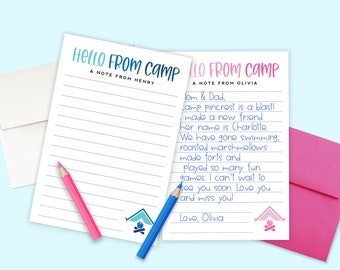 HELLO FROM CAMP
A NOTE FROM HENRY
HELLO FROM CAMP
A NOTE FROM OLIVIA
Mom & Dad,
Camp pincrest is a blast!
I made a new friend
her name is Charlotte.
We have gone swimming,
roasted marshmallows
made forts and
played so many fun
games. I can't wait to
see you soon. Love you
and miss you!
Love, Olivia